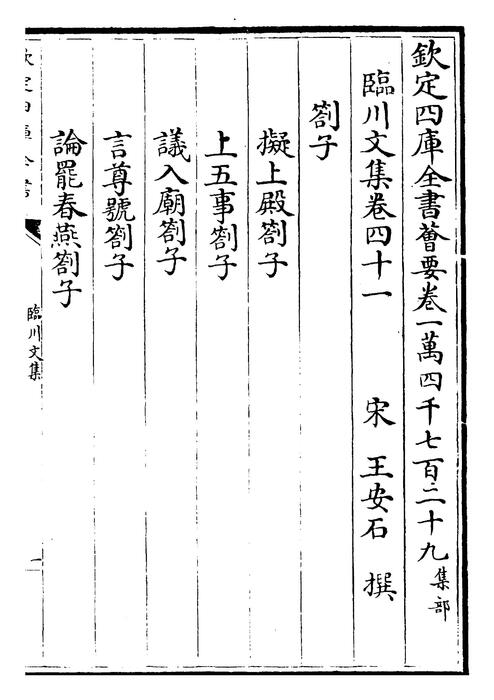 欽定四庫全書薈要卷一萬四千七百二十九集部
臨川文集卷四十一 宋 王安石 撰
劄子
擬上殿劄子
上五事劄子
議入廟劄子
言尊號劄子
論罷春燕劄子
欽定四庫全書
臨川文集
一